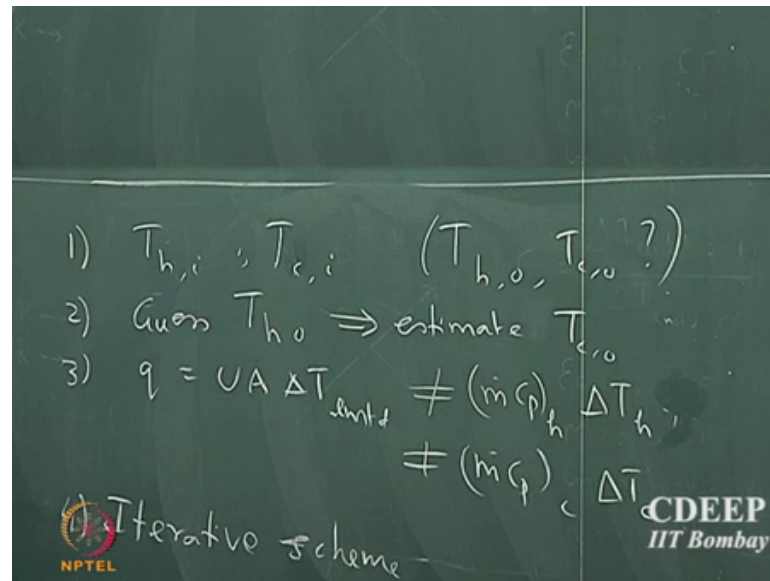 1) T_h,i , T_c,i (T_h,o, T_c,o ?)
2) Guess T_ho ⇒ estimate T_c,o
3) q = UA ΔT_lmtd ≠ (ṁ Cp)_h ΔT_h,
≠ (ṁ Cp)_c ΔT_c
Iterative scheme
NPTEL
CDEEP
IIT Bombay